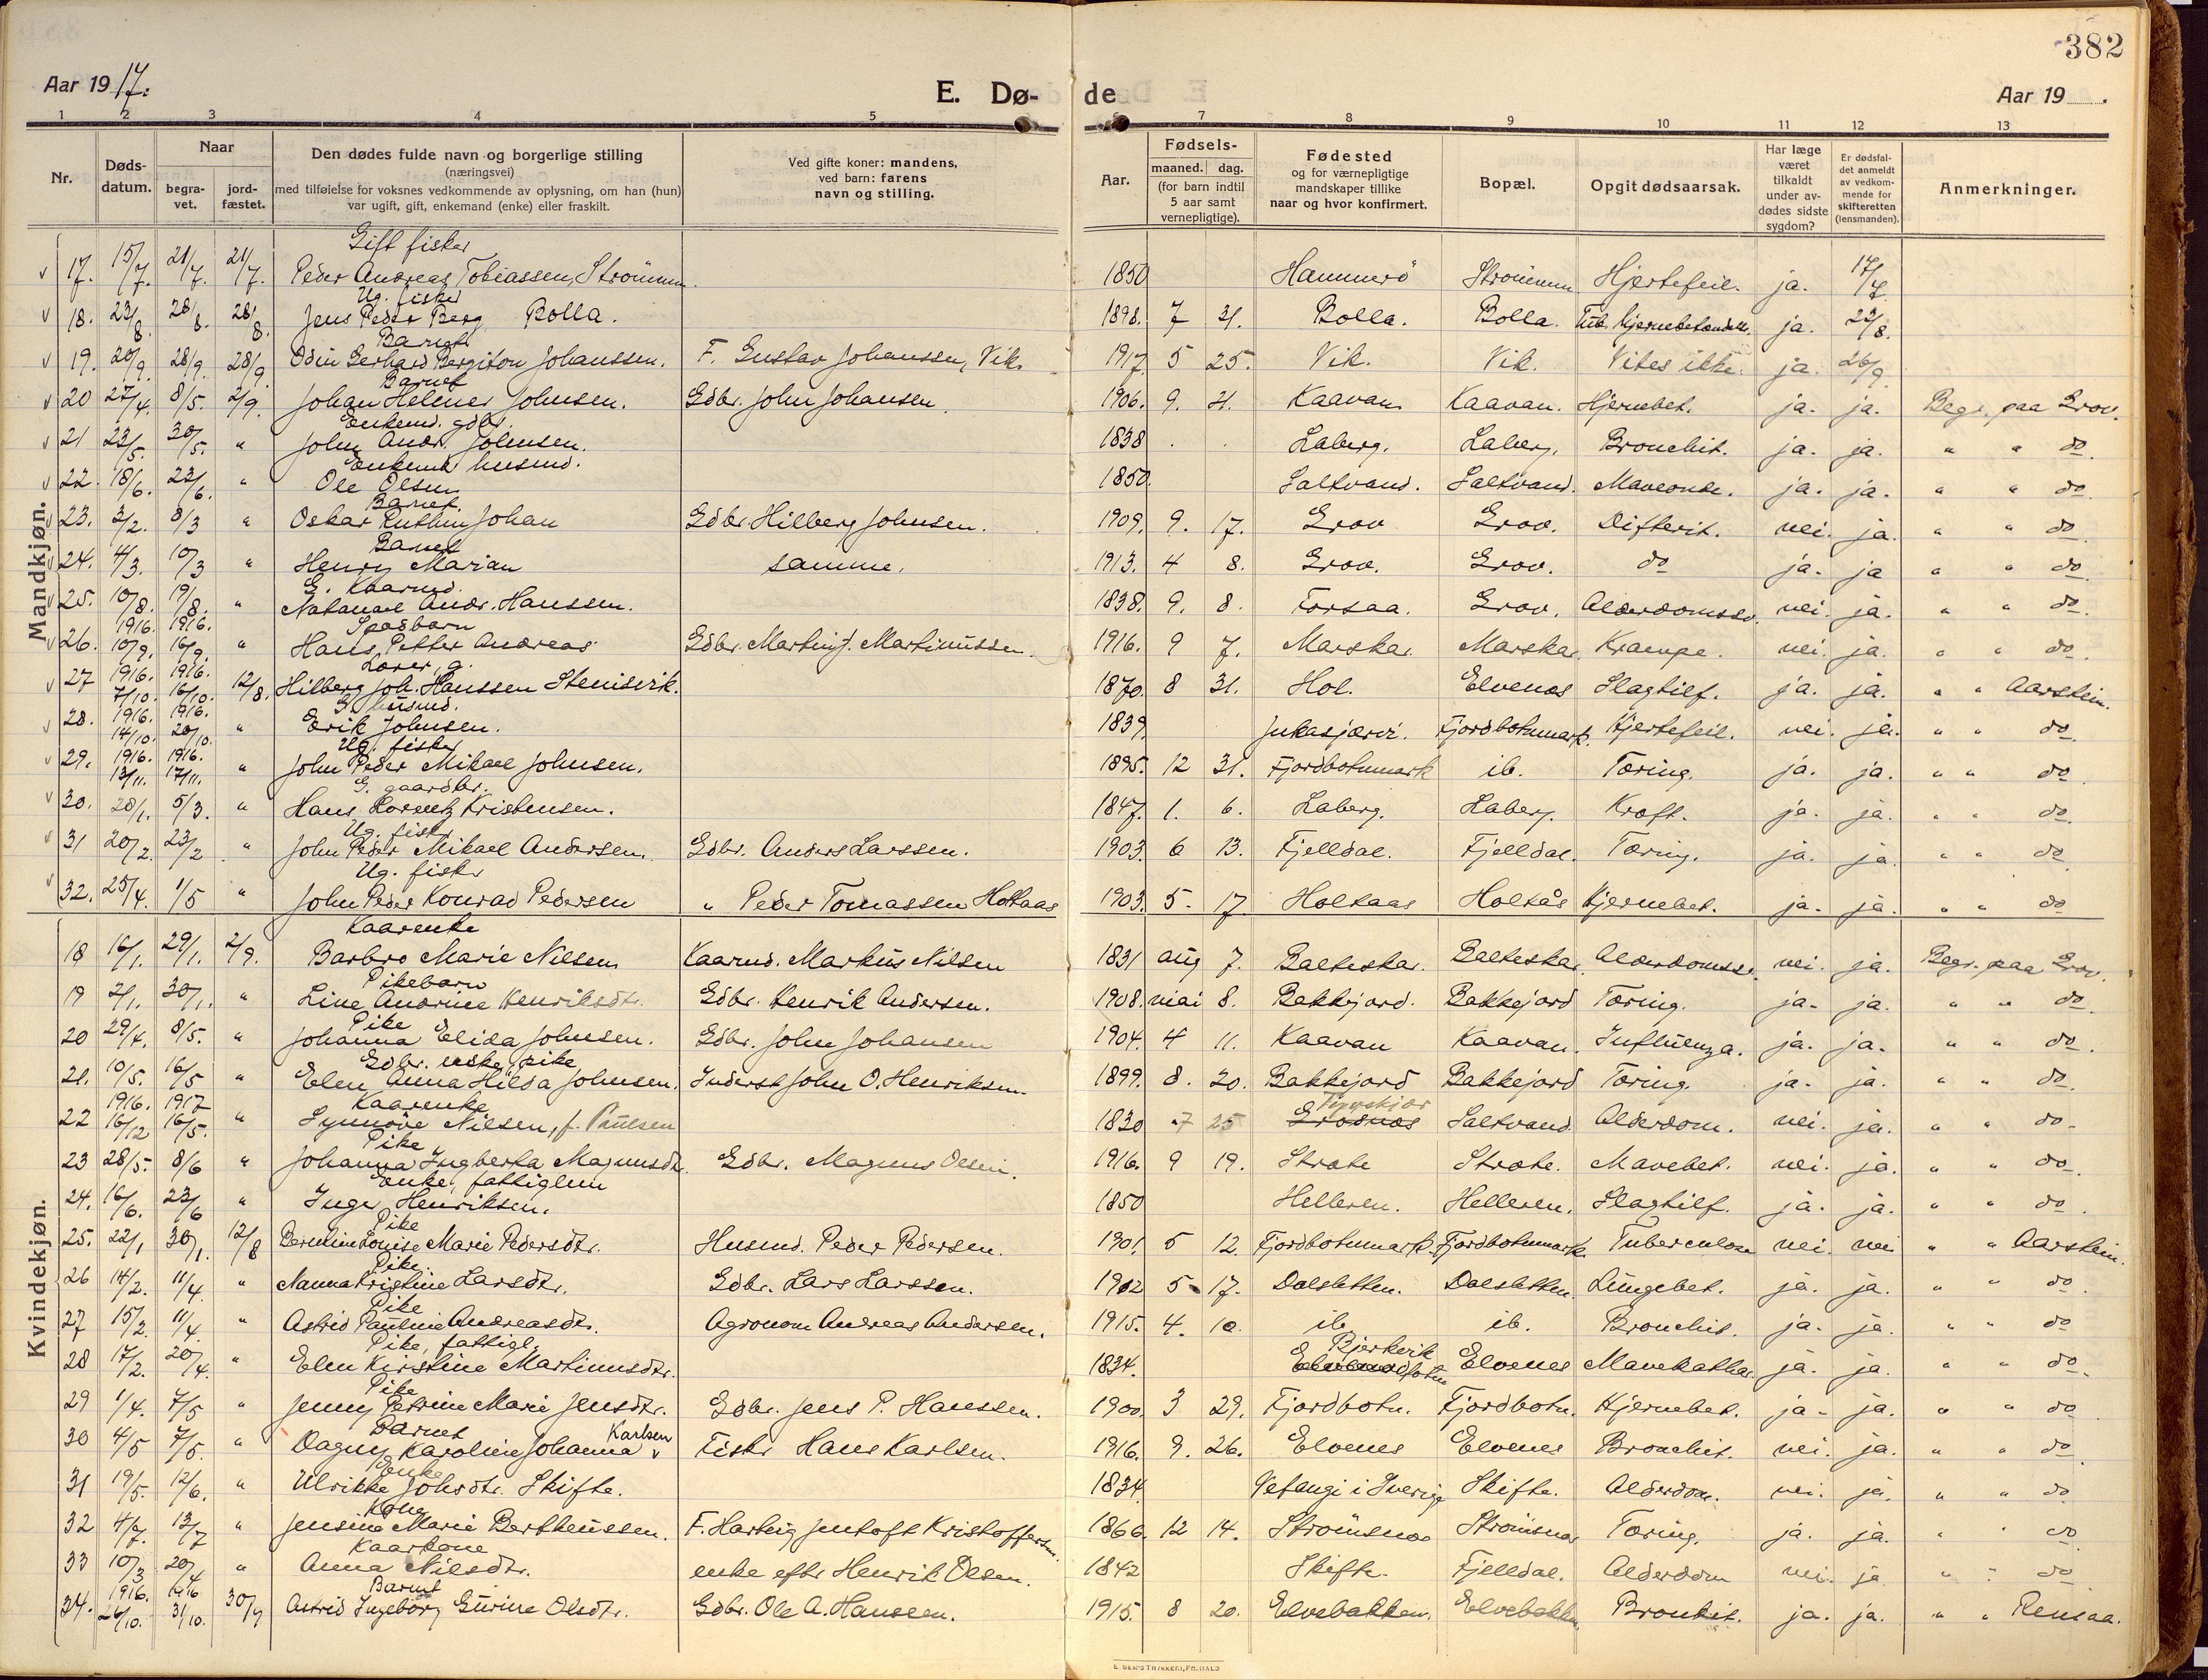 382
Aar 1917.
E. Dø-
de
Aar 19 .
1 2 3 4 5 6 7 8 9 10 11 12 13
Nr.
Døds-
datum.
Naar
begra-
vet.
jord-
fæstet.
Den dødes fulde navn og borgerlige stilling
(næringsvei)
med tilføielse for voksnes vedkommende av oplysning, om han (hun)
var ugift, gift, enkemand (enke) eller fraskilt.
Ved gifte koner: mandens,
ved barn: farens
navn og stilling.
Aar.
Fødsels-
maaned. dag.
(for barn indtil
5 aar samt
vernepligtige).
Fødested
og for værnepligtige
mandskaper tillike
naar og hvor konfirmert.
Bopæl.
Opgit dødsaarsak.
Har læge
været
tilkaldt
under av-
dødes sidste
sygdom?
Er dødsfal-
det anmeldt
av vedkom-
mende for
skifteretten
(lensmanden).
Anmerkninger.
Mandkjøn.
Gift fisker
17. 15/7. 21/7. 21/7. Peder Andreas Tobiassen, Strømmen. 1850 Hammerö Strömmen Hjertefeil. ja. 17/7
Ug. fisker
18. 23/8. 28/8. 28/8. Jens Peder Berg Bolla. 1898. 7 31. Bolla. Bolla. Tub. hjernebetændelse ja. 23/8.
Barnet
19. 20/9. 28/9. 28/9. Odin Gerhard Bergiton Johanssen. F. Gustav Johanssen, Vik. 1917. 5 25. Vik. Vik. Vites ikke. ja. 26/9.
Barnet
20 27/4. 8/5. 2/9. Johan Helmer Johnsen. Gdbr. John Johansen. 1906. 9. 21. Kaavan Kaavan. Hjernebet. ja. ja. Begr. paa Grov.
Enkemd. gdbr.
21 23/5. 30/5. " John Andr. Johnsen. 1838 Laberg. Laberg. Bronchit. ja. ja. " " do.
Enkemd husmd.
22. 18/6. 23/6. " Ole Olsen 1850. Saltvand. Saltvand. Maveonde. ja. ja. " " do.
Barnet.
23. 3/2. 8/3 " Oskar Ruthin Johan Gdbr Hilberg Johnsen. 1909. 9. 17. Grov Grov. Difterit. nei. ja. " " do
Barnet
24. 4/3. 10/3 " Henry Marian samme. 1913. 4 8. Grov. Grov. do ja. ja " " do
G. Kaarmd.
25. 10/8. 19/8. " Natanael Andr. Hanssen. 1838. 9. 8. Forsaa. Grov. Alderdomssv. nei. ja. " " do
Spædbarn
26. 1916. 10/9. 1916. 16/9. " Hans Petter Andreas Gdbr. Martin J. Martinussen. 1916. 9 7. Marskar Marskar Krampe. nei. ja. " " do.
Lærer, g.
27 1916. 7/10. 1916. 16/10. 12/8. Hilberg Joh. Hanssen Stenisvik. 1870. 8 31. Hol. Elvenes Slagtilf. ja. ja. " " Aarstein.
G. husmd.
28. 1916. 14/10. 1916. 20/10. " Erik Johnsen. 1839. Jukasjærvi. Fjordbotnmark. Hjertefeil. nei. ja. " " do
Ug. fisker
29. 1916. 13/11. 1916. 17/11. " John Peder Mikael Johnsen. 1895. 12 31. Fjordbotnmark ib. Tæring. ja. ja. " " do.
G. gaardbr.
30. 28/1. 5/3. " Hans Lorentz Kristensen. 1847. 1. 6. Laberg. Laberg. Kræft. ja. ja. " " do.
Ug. fisker
31 20/2. 23/2 " John Peder Mikael Andersen. Gdbr. Anders Larssen. 1903. 6 13. Fjelldal. Fjelldal. Tæring. ja. ja. " " do
Ug. fisker
32. 25/4. 1/5 " John Peder Konrad Pedersen " Peder Tomassen Holtaas 1903. 5. 17. Holtaas Holtås Hjernebet. ja. ja. " " do
Kvindekjøn.
Kaarenke
18 16/1. 29/1. 2/9. Barbro Marie Nilsen Kaarmd. Markus Nilsen 1831 aug 7. Balteskar. Balteskar Alderdomssv. nei. ja. Begr. paa Grov.
Pikebarn
19 2/1. 30/1. " Line Andrine Henriksdtr. Gdbr. Henrik Andersen. 1908. mai 8. Bakkejord. Bakkejord Tæring. ja. ja. " " do.
Pike
20 29/4. 8/5. " Johanna Elida Johnsen. Gdbr. John Johansen 1904. 4 11. Kaavan Kaavan. Influenza. ja. ja. " " do.
21. 10/5. 16/5 " Elen Anna Hilda Johnsen. Inderst John O. Henriksen. 1899. 8. 20. Bakkejord Bakkejord Tæring. ja. ja. " " do.
Kaarenke
22 1916. 16/12 1917 16/5. " Synnöve Nilsen, f. Paulsen 1830 7 25 Grosnæs Saltvand. Alderdom. nei. ja. " " do.
Pike
23 28/5. 8/6 " Johanna Ingberta Magnusdtr. Gdbr. Magnus Olsen. 1916. 9 19. Stræte Stræte. Mavebet. nei. ja. " " do.
Enke, fattiglem
24. 16/6. 23/6 " Inger Henriksen. 1850 Helleren. Helleren. Slagtilf. ja. ja. " " do.
Pike
25. 22/1 30/1. 12/8 Bernline Louise Marie Pedersdtr. Husmd. Peder Pedersen. 1901. 5 12. Fjordbotnmark. Fjordbotnmark. Tuberculose nei. nei " " Aarstein.
Pike
26 14/2. 11/4 " Nanna Kristine Larsdtr. Gdbr. Lars Larssen. 1902 5 17. Dalsletten. Dalsletten. Lungebet. ja. ja. " " do.
Pike
27 15/2. 11/4. " Astrid Pauline Andreasdtr. Agronom Andreas Andersen. 1915. 4. 10. ib. ib. Bronchit. ja. ja. " " do
Pike, fattigl.
28 17/2. 20/4. " Elen Kirstine Martinusdtr. 1834. Bjerkvik Elvenes Mavekathar. ja. ja. " " do.
Pike
29 1/4. 7/5 " Jenny Petrine Marie Jensdtr. Gdbr. Jens P. Hanssen. 1900. 3 29. Fjordbotn. Fjordbotn. Hjernebet. ja. ja. " " do.
Barnet Karlsen
30 4/5 7/5. " Dagny Karoline Johanna v Fisker Hans Karlsen. 1916. 9. 26. Elvenes Elvenes Bronchit. nei. ja. " " do
Enke
31 19/5. 12/6. " Ulrikke Johsdtr. Skifte. 1834. Vefangi i Sverige Skifte. Alderdom. nei. ja. " " do
Kone
32 4/7. 13/7 " Jensine Marie Bertheussen. F. Hartvig Jentoft Kristoffersen. 1866. 12 14. Strömsnes Strömsnes Tæring. ja. ja. " " do
Kaarkone
33 10/3 20/4 " Anna Nilsdtr. enke efter Henrik Olsen. 1842 Skifte. Fjelldal. Alderdom nei. ja " " do
Barnet
34. 1916. 26/10. 1916 31/10. 30/9 Astrid Ingeborg Gurine Olsdtr. Gdbr. Ole A. Hanssen. 1915. 8 20. Elvebakken. Elvebakken. Bronkit. ja. ja. " " Rensaa.